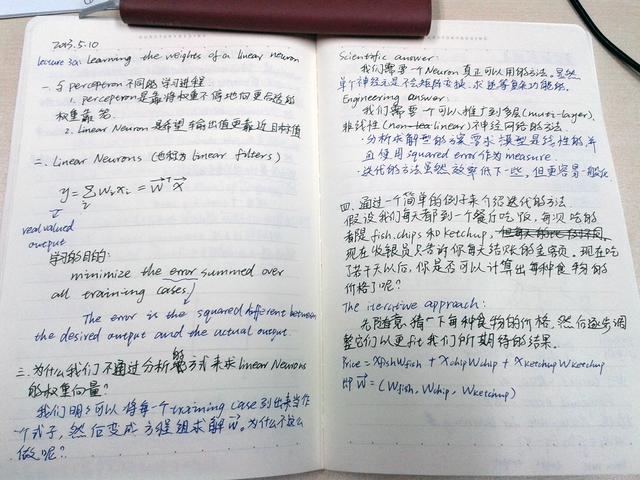 2013.5.10
lecture 3a: Learning the weights of a linear neuron
一. 与 perceptron 不同的学习进程
1. perceptron是靠将权重不停地向更合适的
权重靠笼.
2. Linear Neuron是希望输出值更靠近目标值
二. Linear Neurons (也称为 linear filters)
y = Σ wᵢxᵢ = w⃗ᵀx⃗
i
real valued
output
学习的目的:
minimize the error summed over
all training cases.
The error is the squared different between
the desired output and the actual output.
三. 为什么我们不通过分析的方式来求linear Neurons
的权重向量?
我们明明可以将每一个training case列出来当作
一个式子, 然后变成方程组求解w⃗。为什么不这么
做呢?
Scientific answer:
我们需要一个Neuron真正可以用的方法, 显然
单个神经元是不会矩阵变换、求逆等复杂功能的.
Engineering answer:
我们需要一个可以推广到多层(multi-layer).
非线性(non-linear)神经网络的方法.
·分析求解型的方案要求模型是线性的, 并
且使用 squared error 作为 measure.
·迭代的方法虽然效率低下一些, 但更容易一般化.
四. 通过一个简单的例子来介绍迭代的方法
假设我们每天都到一个餐厅吃饭, 每次吃的
都是 fish, chips 和 ketchup,
现在收银员只告诉你每天结账的金额. 现在吃
了若干天以后, 你是否可以计算出每种食物的
价格了呢?
The iterative approach:
先随意猜一下每种食物的价格, 然后逐步调
整它们以更fit我们所期待的结果.
Price = Xfish Wfish + Xchip Wchip + Xketchup Wketchup
即 w⃗ = (Wfish, Wchip, Wketchup)